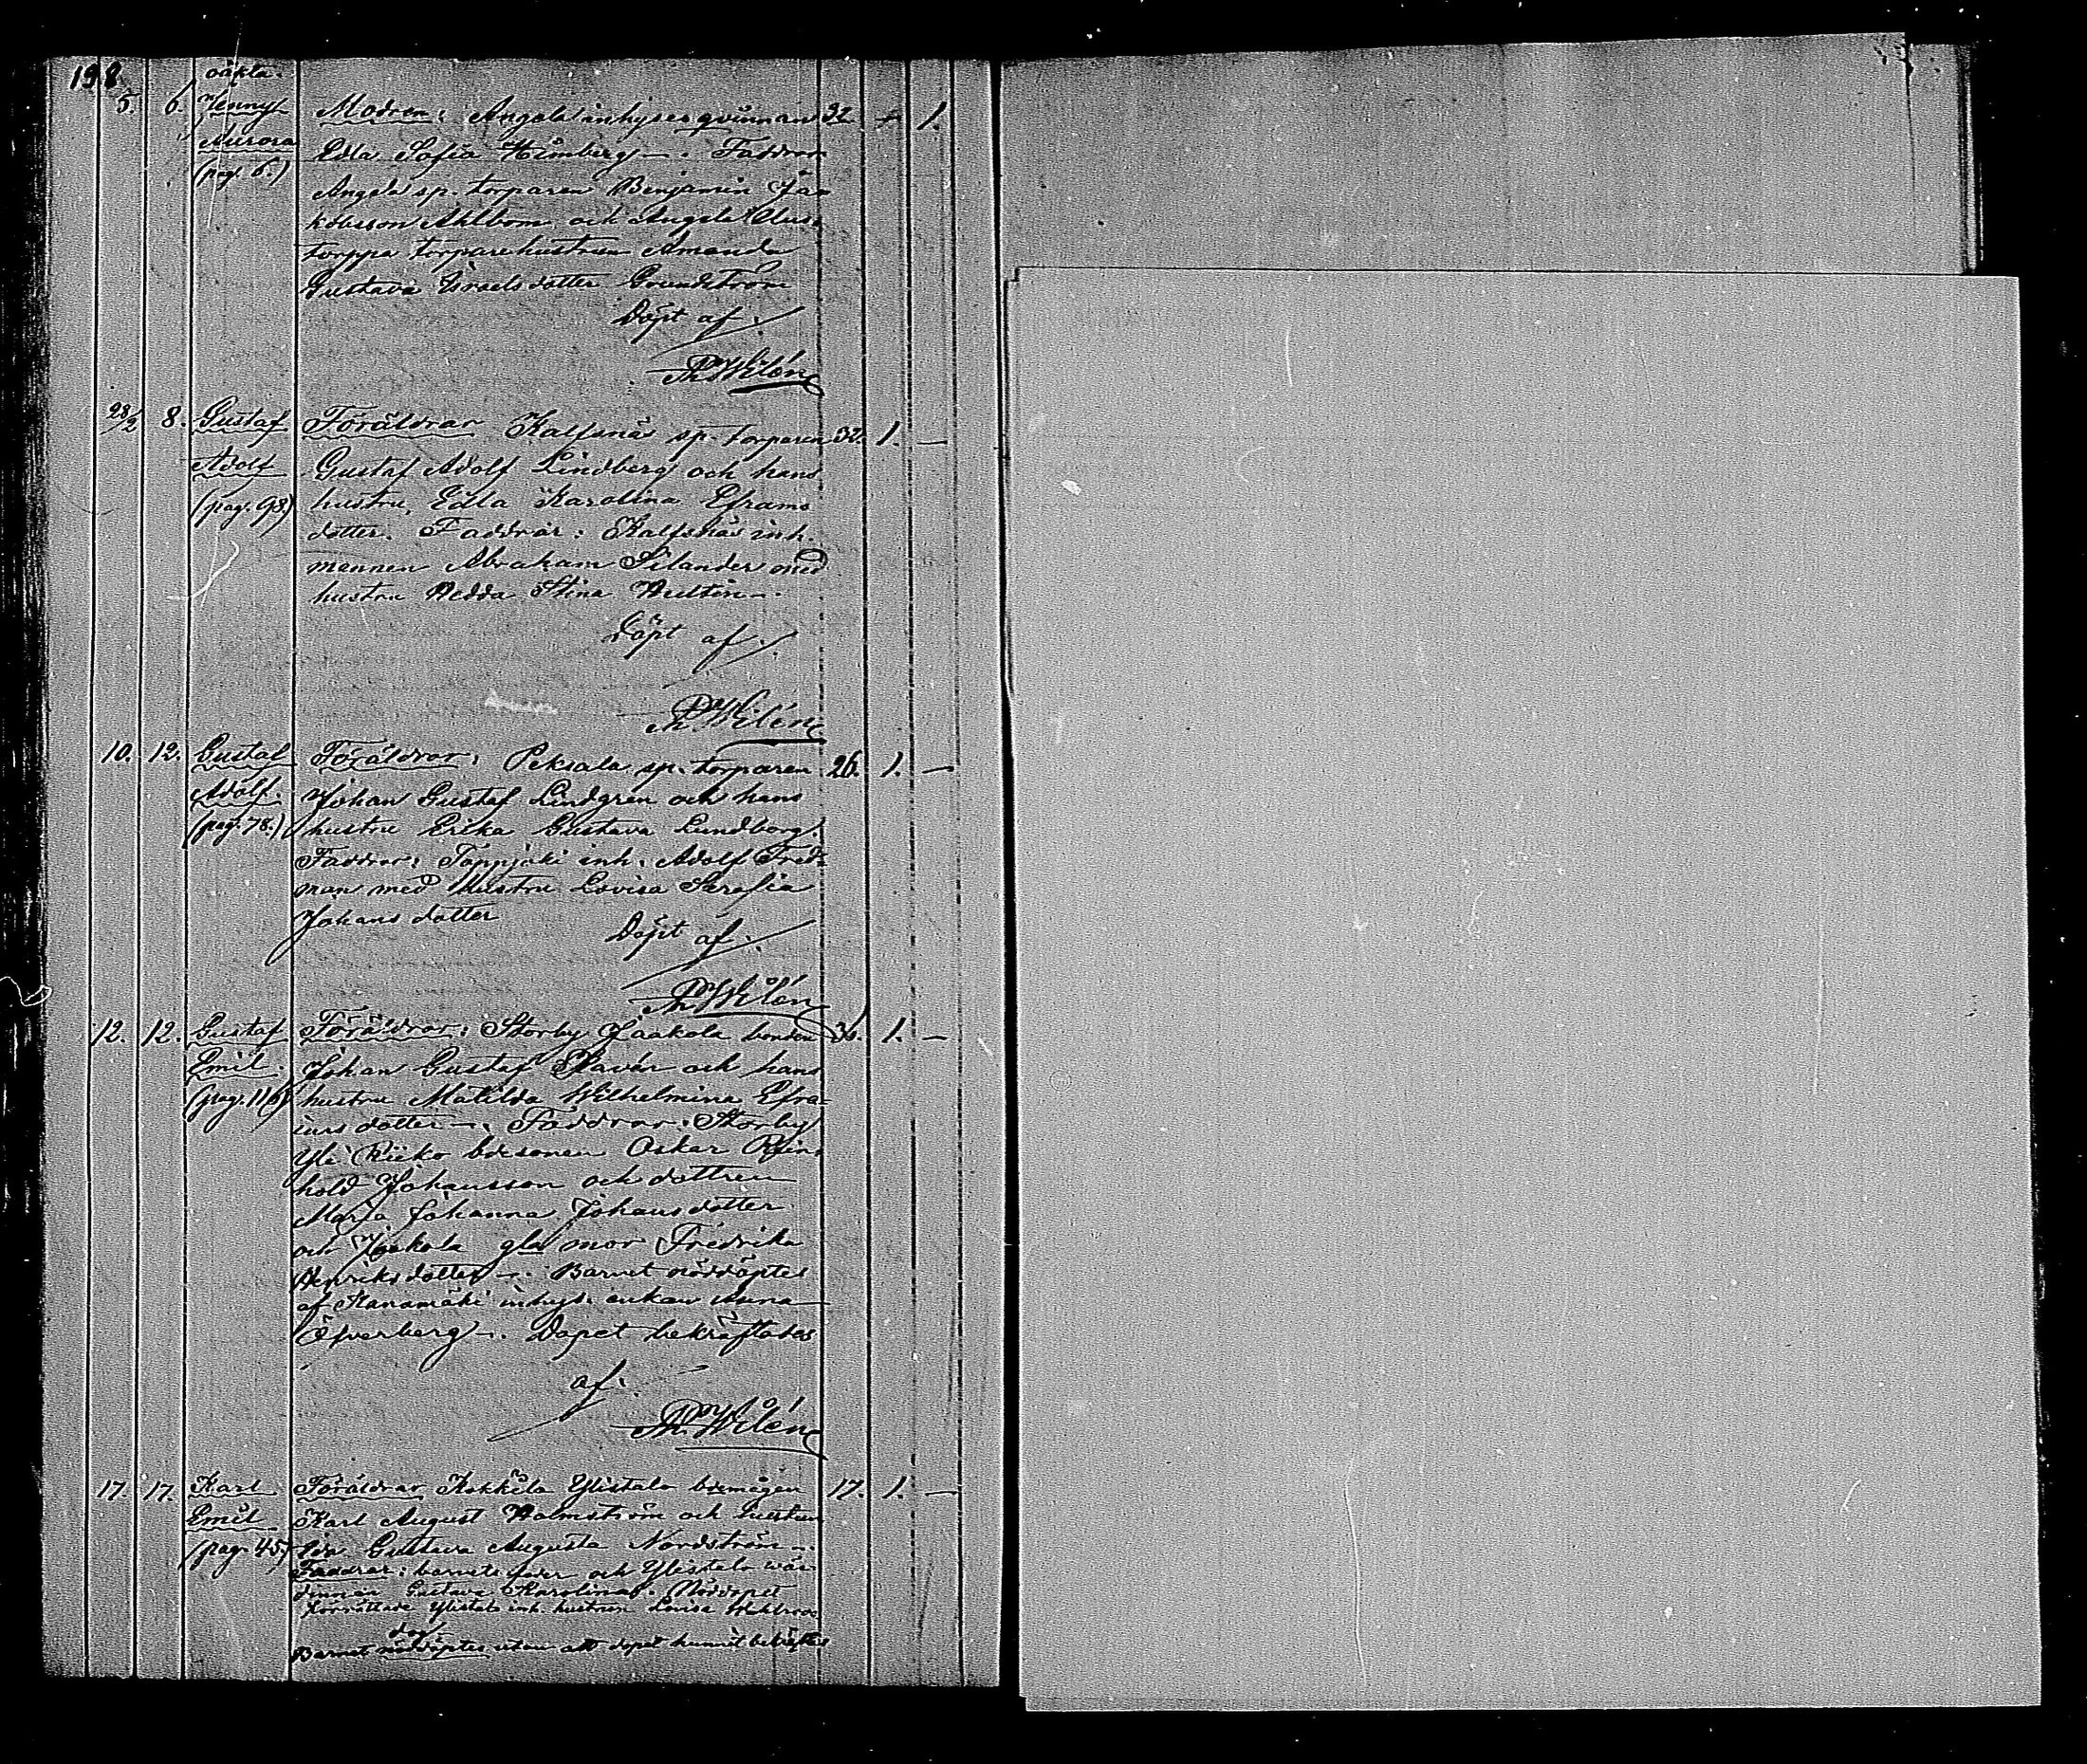 198.
oäkta.
5. 6. Jenny Modren: Angela inhyses qvinnan 32 — 1.
Aurora Edla Sofia Himberg —. Faddrar
(pag. 6.) Angela sp. torparen Benjamin Ja-
kobsson Ahlbom och Angela
torppa torparehustrun Amanda
Gustava Israelsdotter Grundström
Döpt af:
Th. Wilén
28/2 8. Gustaf Föräldrar Kalfsnäs sp. torparen 32. 1. —
Adolf Gustaf Adolf Lindberg och hans
(pag. 98) hustru, Edla Karolina Eframs
dotter. Faddrar: Kalfsnäs inh.
mannen Abraham Silander med
hustru Hedda Stina
Döpt af:
Th. Wilén
10. 12. Gustaf Föräldrar: Peksala sp. torparen 26. 1. —
Adolf. Johan Gustaf Lindgren och hans
(pag. 78.) hustru Erika Gustava Lundborg.
Faddrar: Töppjöki inh. Adolf Fred-
man med hustru Lovisa Serafia
Johansdotter
Döpt af:
Th. Wilén
12. 12. Gustaf Föräldrar: Storby Jaakola bonden 36. 1. —
Emil. Johan Gustaf och hans
(pag. 116) hustru Matilda Wilhelmina Efra-
ims dotter —. Faddrar: Storby
Yli Kiiko bdesonen Oskar Rein-
hold Johansson och dottren
Maria Johanna Johansdotter
och Jaakola gla mor Fredrika
Henriksdotter —. Barnet nöddöptes
af Kanamäki inhys. enkan Anna
Öfverberg —. Dopet bekräftades
af:
Th. Wilén
17. 17. Karl Föräldrar Kokkila Ylistalo bdemågen 17. 1. —
Emil Karl August Holmström och hustrun
(pag. 45) Ida Gustava Augusta Nordström —.
Faddrar: barnets fader och Ylistalo wär-
dinnan Gustava Karolina. Nöddopet
förrättade Ylistalo inh. hustrun Lovisa
dog
Barnet nöddöptes utan att dopet hunnit bekräftas